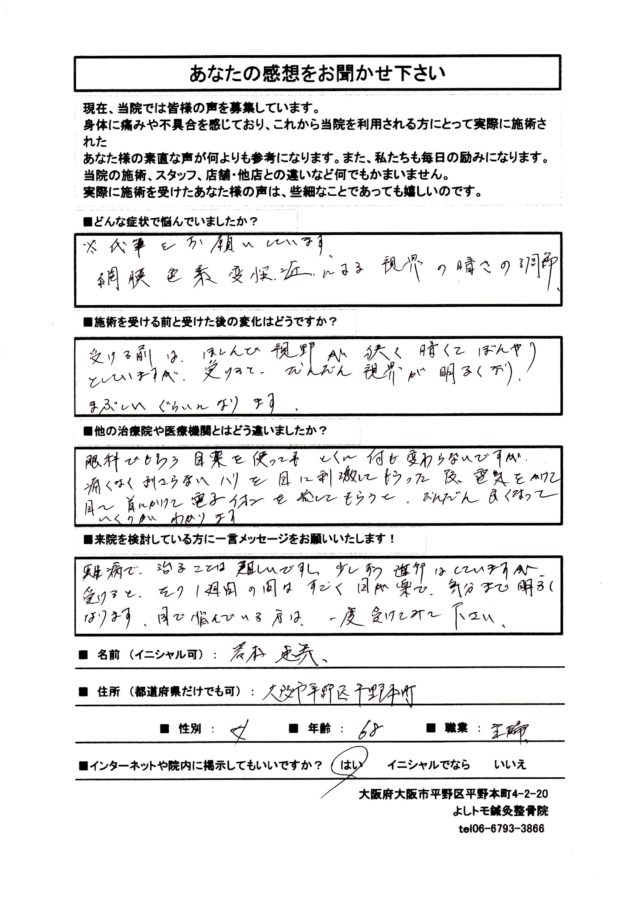 あなたの感想をお聞かせ下さい
現在、当院では皆様の声を募集しています。
身体に痛みや不具合を感じており、これから当院を利用される方にとって実際に施術さ
れた
あなた様の素直な声が何よりも参考になります。また、私たちも毎日の励みになります。
当院の施術、スタッフ、店舗・他店との違いなど何でもかまいません。
実際に施術を受けたあなた様の声は、些細なことであっても嬉しいのです。
■どんな症状で悩んでいましたか？
※代筆をお願いしています。
網膜色素変性症による視界の暗さの調節
■施術を受ける前と受けた後の変化はどうですか？
受ける前は、ほとんど視野が狭く暗くてぼんやり
としていますが、受けると、だんだん視界が明るくなり、
まぶしいぐらいになります。
■他の治療院や医療機関とはどう違いましたか？
眼科でもらう目薬を使っても とくに何も変わらないですが、
痛くなく刺さらないハリを目に刺激してもらった後、電気をかけて
目と首にかけて電子イオンを流してもらうと、だんだん良くなって
いくのがわかります
■来院を検討している方に一言メッセージをお願いいたします！
難病で、治ることは難しいですし、少しずつ進行はしていますが、
受けると、そり1週間の間はすごく目が楽で、気分まで明るく
なります。目で悩んでいる方は、一度受けてみて下さい。
■ 名前（イニシャル可）：
■ 住所（都道府県だけでも可）：大阪市平野区平野本町
■ 性別：女 ■ 年齢：68 ■ 職業：主婦
■インターネットや院内に掲示してもいいですか？ はい イニシャルでなら いいえ
大阪府大阪市平野区平野本町4-2-20
よしトモ鍼灸整骨院
tel06-6793-3866